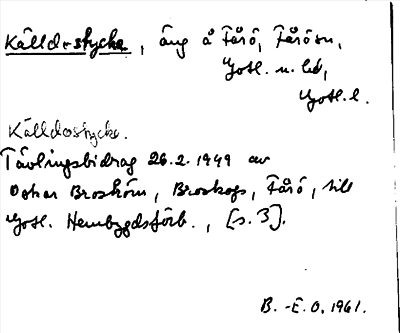 Källdestycke, äng å Fårö, Fårö sn,
Gotl. n. hd,
Gotl. l.
Källdostycke.
Tävlingsbidrag 26.2.1949 av
Oskar Broström, Broskogs, Fårö, till
Gotl. Hembygdsförb., [s. 3].
B.-E.O. 1961.